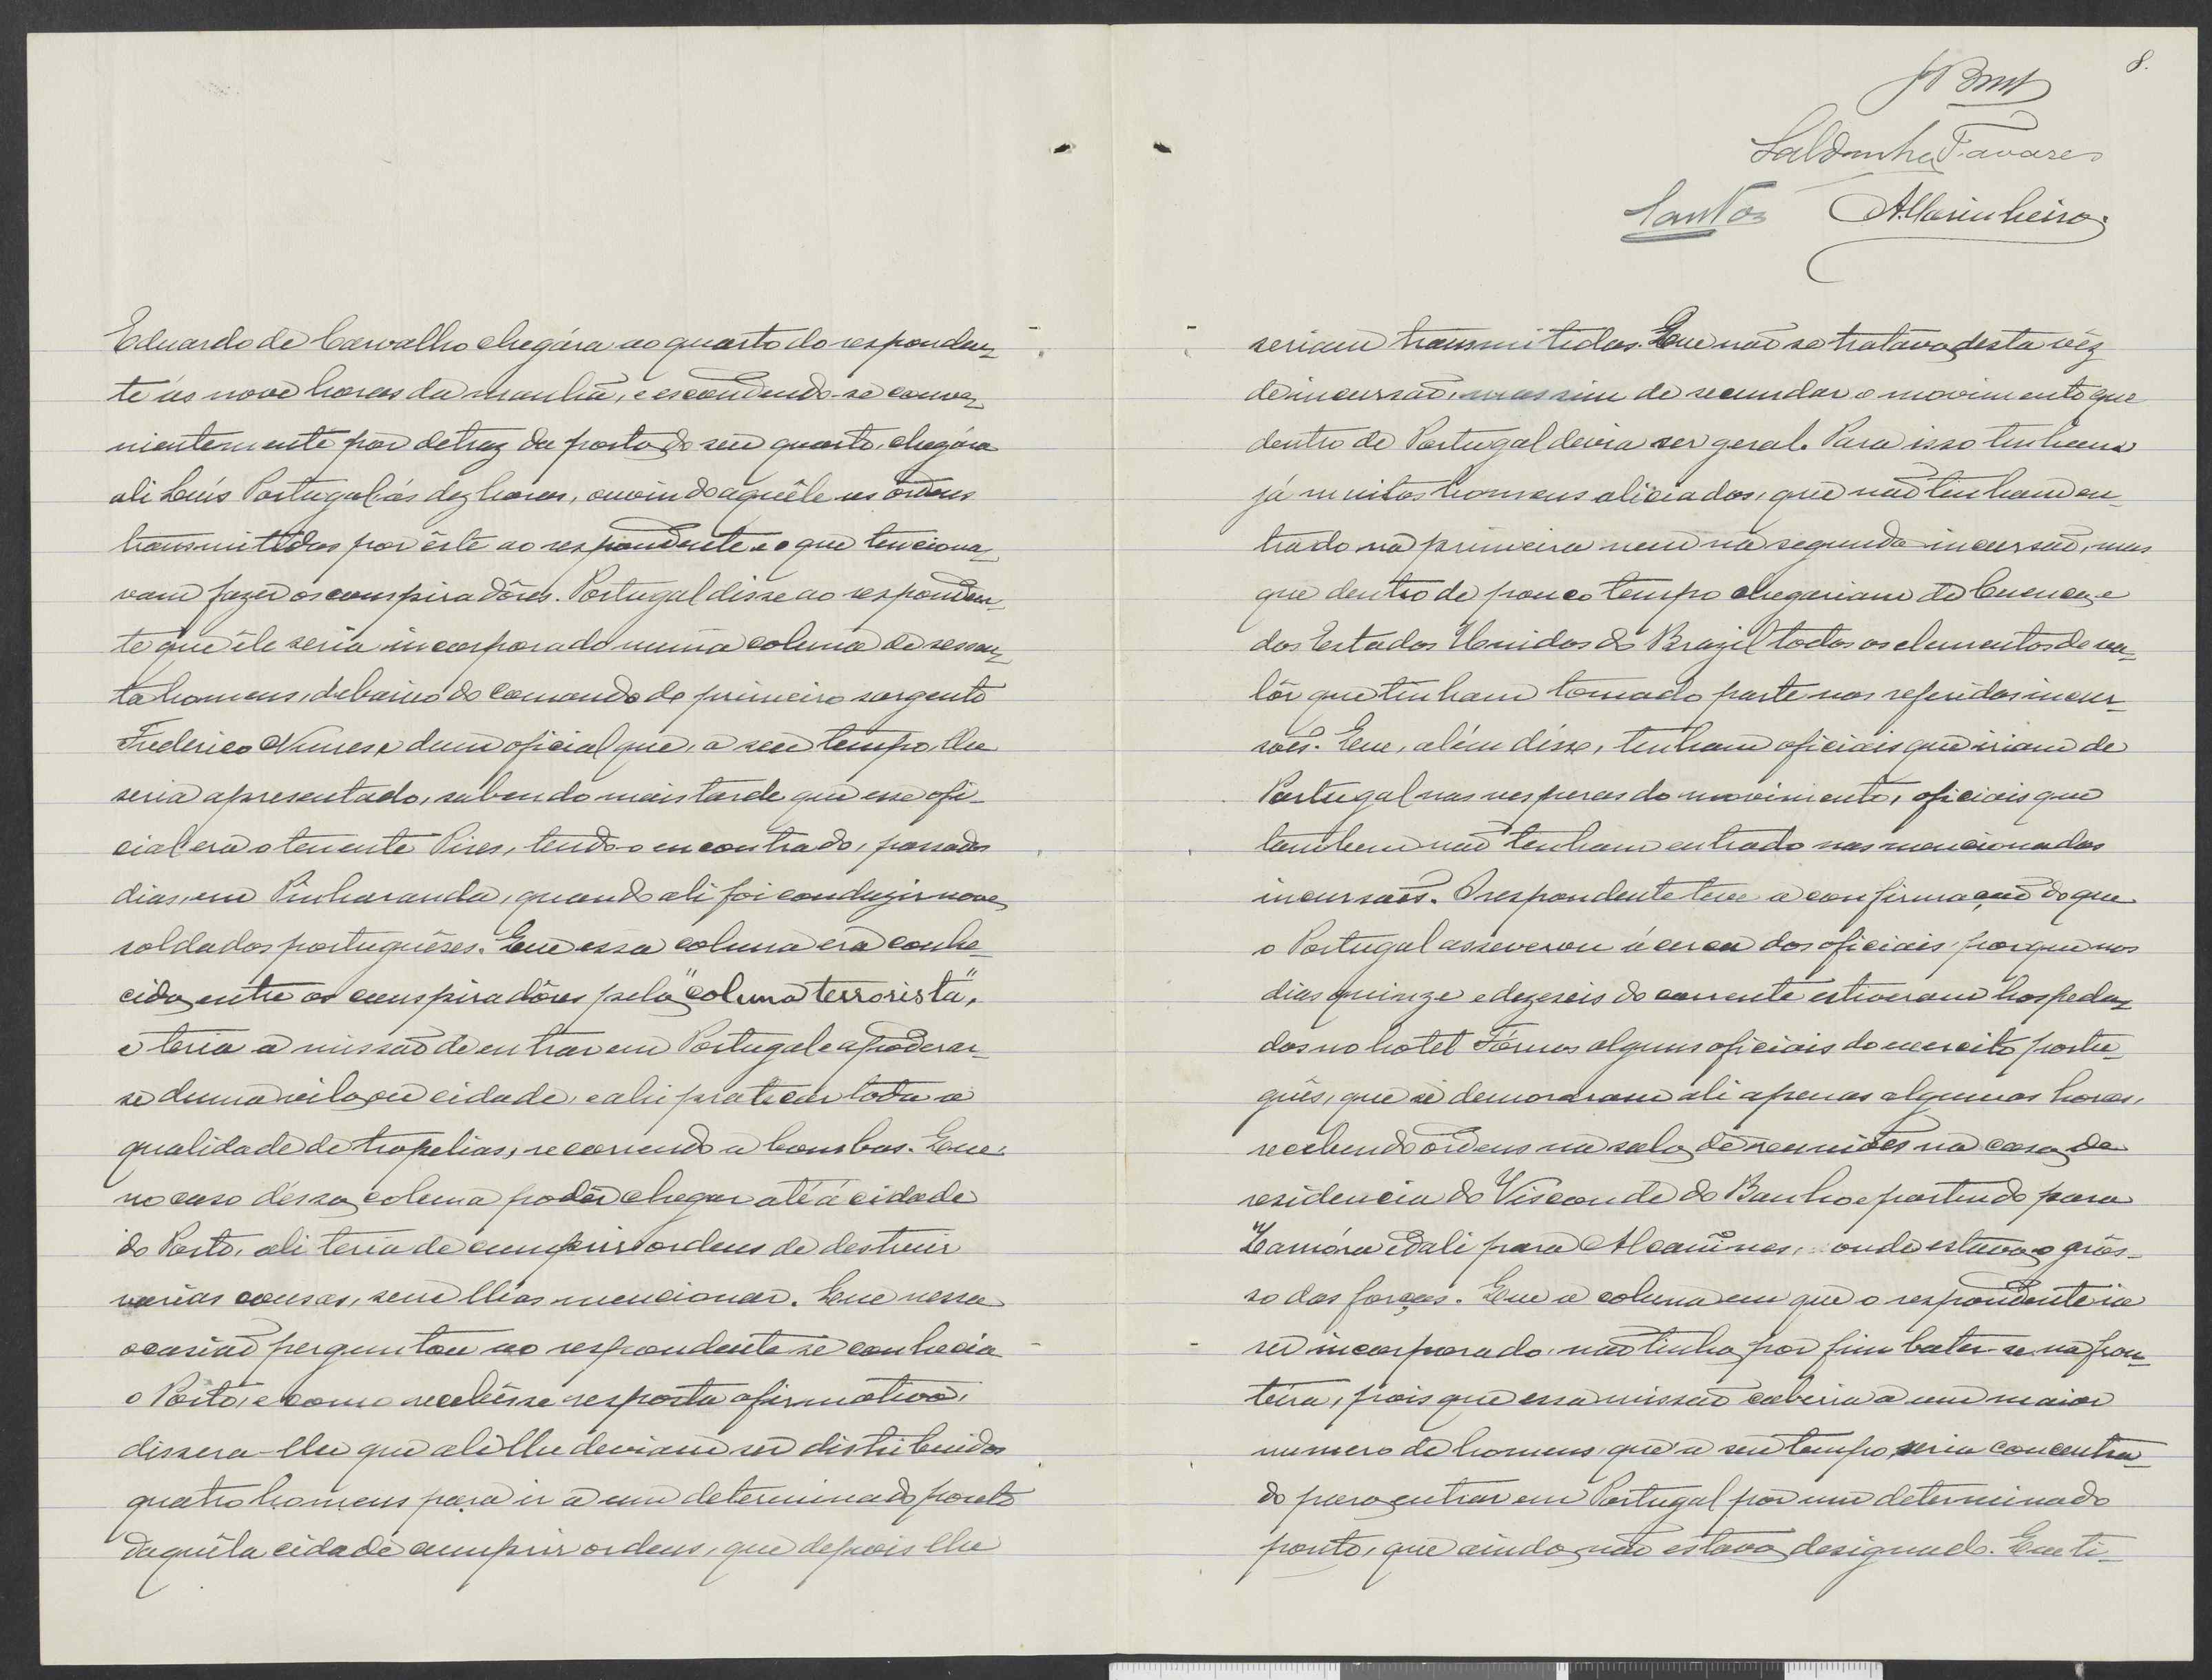 Eduardo de Carvalho chegára ao quarto do responden-
te ás nove horas da manhã, e escondendo-se conve-
nientemente por detraz da porta do seu quarto, chegára
ali Luís Portugal ás dez horas, ouvindo aquêle as ordens
transmitidas por êste ao respondente e o que tenciona-
vam fazer os conspiradôres. Portugal disse ao responden-
te que êle seria incorporado numa coluna de sessen-
ta homens, debaixo do comando do primeiro sargento
Frederico Nunes, e dum oficial que, a seu tempo, lhe
seria apresentado, sabendo mais tarde que esse ofi-
cial era o tenente Pires, tendo-o encontrado, passados
dias, em Pinharanda, quando ali foi conduzir nove
soldados portuguêses. Que essa coluna era conhe-
cida entre os conspiradôres pela "coluna terrorista",
e teria a missão de entrar em Portugal e apoderar-
se duma vila ou cidade, e ahi praticar toda a
qualidade de tropelias, recorrendo a bombas. Que:
no caso déssa coluna podêr chegar até á cidade
do Porto, ali teria de cumprir ordens de destruir
varias cousas, sem lhas mencionar. Que nessa
ocasião perguntou ao respondente se conhecia
o Porto, e como recebêsse resposta afirmativa,
dissera-lhe que ali lhe deviam ser distribuidos
quatro homens para ir a um determinado ponto
daquêla cidade cumprir ordens, que depois lhe
8.
Saldanha Tavares
Santos A. Marinheiro
seriam transmitidas. Que não se tratava desta vêz
de incursão, mas sim de secundar o movimento que
dentro de Portugal devia ser geral. Para isso tinham
já muitos homens aliciados, que não tinham en-
trado na primeira nem na segunda incursão, mas
que dentro de pouco tempo chegariam de Cuenca, e
dos Estados Unidos do Brazil todos os elementos de va-
lôr que tinham tomado parte nas referidas incur-
sões. Que, além disso, tinham oficiais que iriam de
Portugal nas vesperas do movimento, oficiais que
tambem não tinham entrado nas mencionadas
incursões. O respondente teve a confirmação do que
o Portugal asseverou ácerca dos oficiais, porque nos
dias quinze e dezeseis do corrente estiveram hospeda-
dos no hotel Fórnos alguns oficiais do exercito portu-
guês, que se demoraram ali apenas algumas horas,
recebendo ordens na sala de reuniões na casa da
residencia do Visconde do Banho e partindo para
Zamóra e dali para Alcañines, onde estava o grôs-
so das forças. Que a coluna em que o respondente ia
ser incorporado não tinha por fim bater-se na fron-
teira, pois que essa missão caberia a um maior
numero de homens, que a seu tempo, seria concentra-
do para entrar em Portugal por um determinado
ponto, que ainda não estava designado. Que ti-